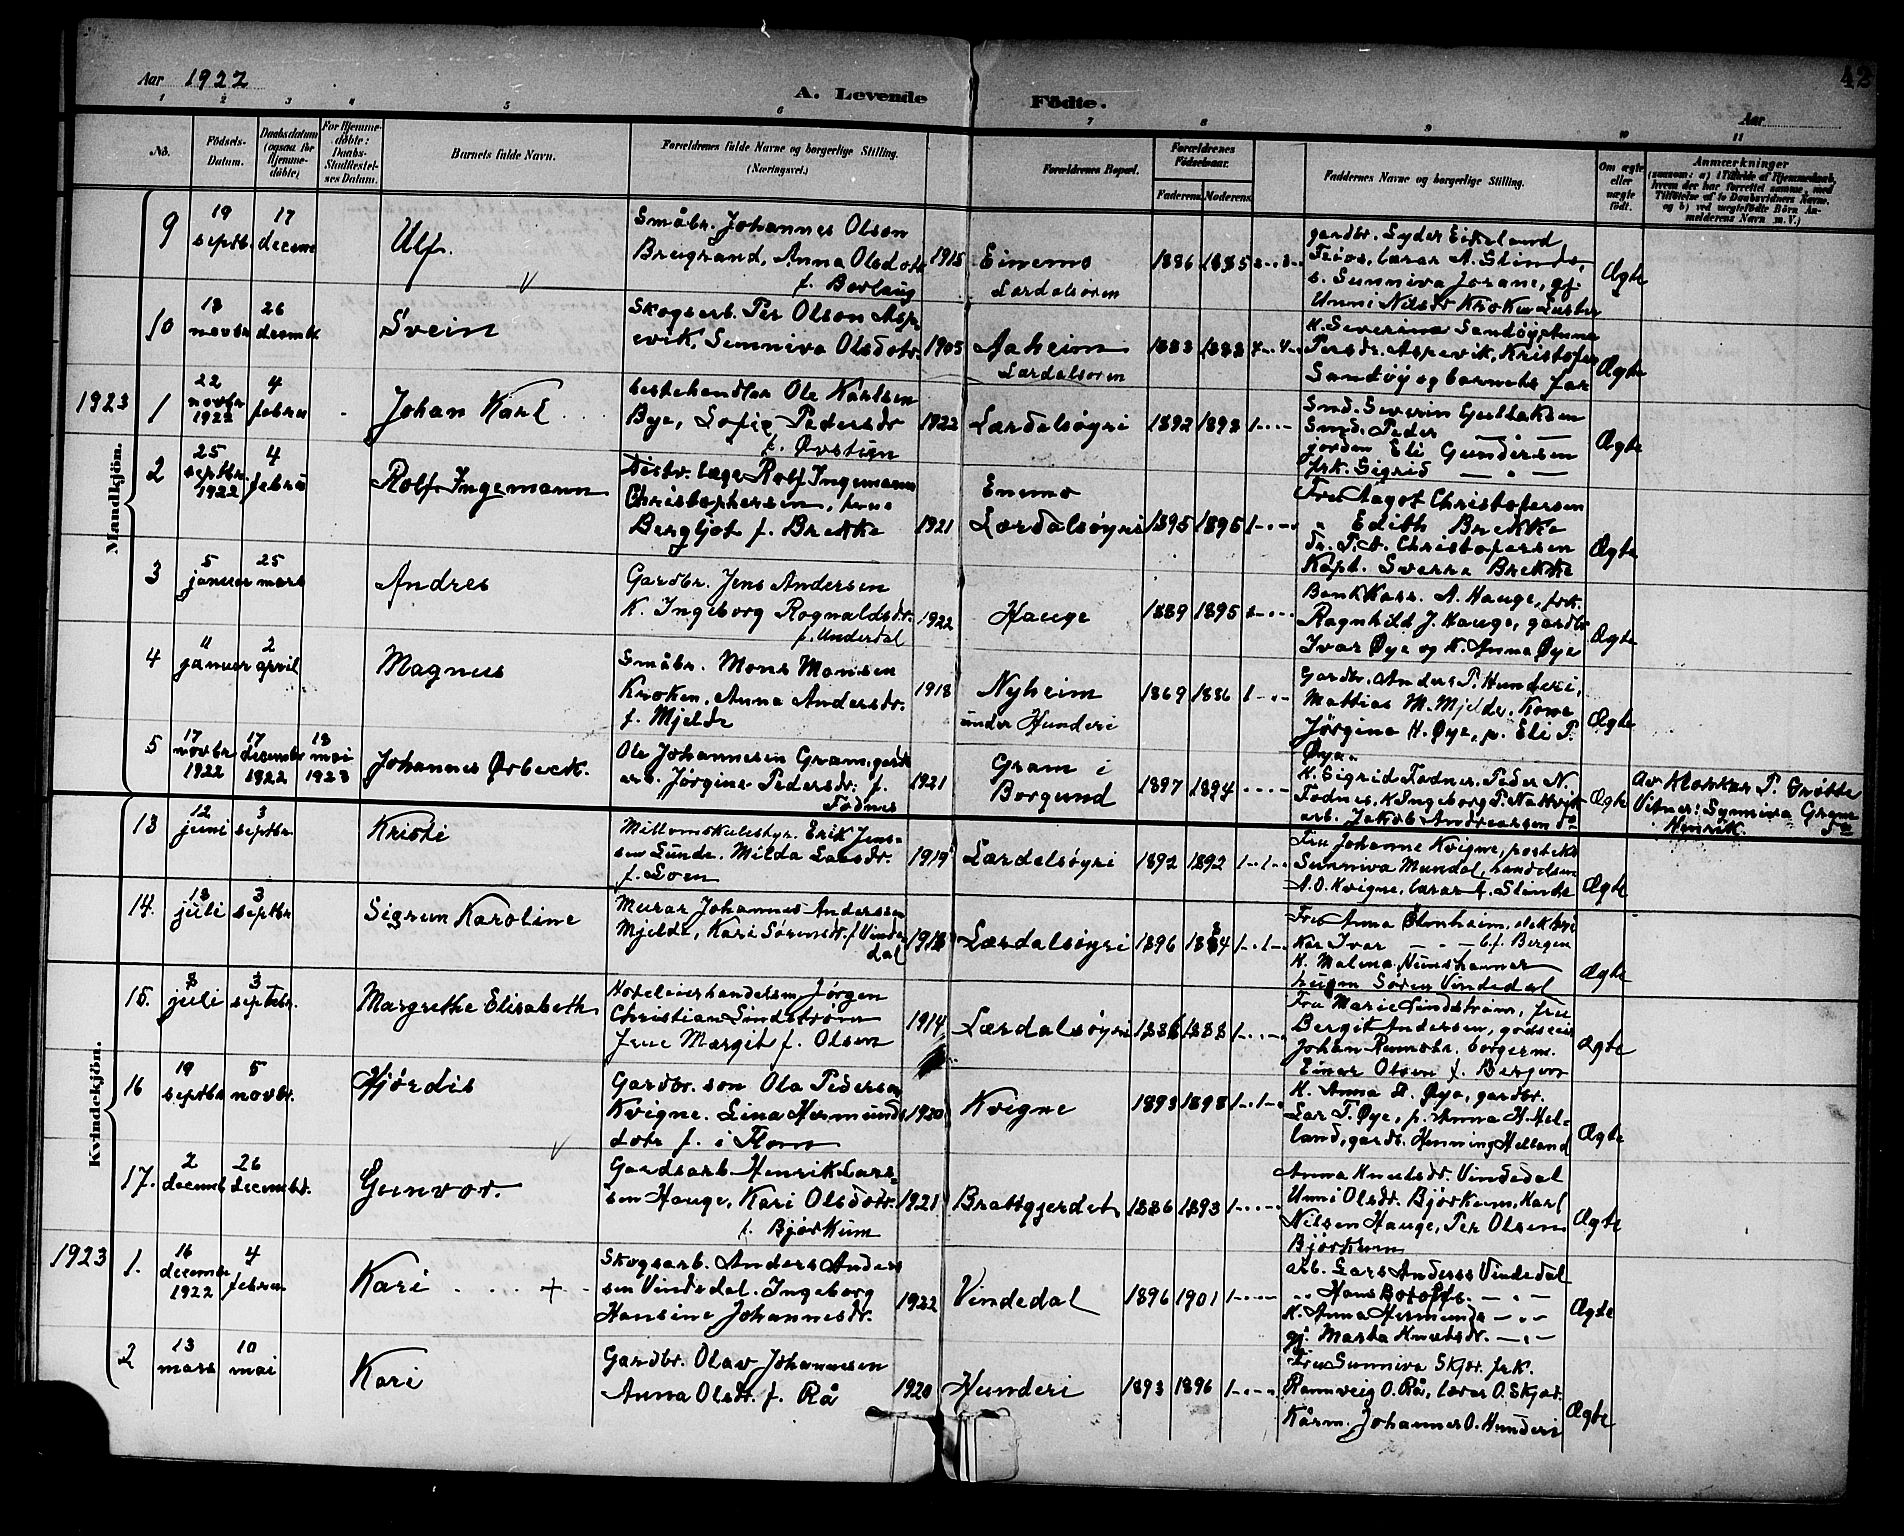 42
Aar 1922
A. Levende Födte.
Aar
1 2 3 4 5 6 7 8 9 10 11
No.
Födsels-Datum.
Daabsdatum (ogsaa for Hjemmedöbte)
For Hjemmedöbte: Daabs-Stadfestelses Datum.
Barnets fulde Navn.
Forældrenes fulde Navne og borgerlige Stilling. (Næringsvei.)
Forældrenes Bopæl.
Forældrenes Födselsaar.
Faderens Moderens
Faddernes Navne og borgerlige Stilling.
Om ægte eller uægte födt.
Anmærkninger
(saasom: a) i Tilfælde af Hjemmedaab, hvem der har forrettet samme, med Tilföielse af to Daabsvidners Navne, og b) ved uægtefödte Börn Anmelderens Navn m. V.)
Mandkjön.
9
19 septbr.
17 decemb
Ulf.
Småbr. Johannes Olson
Breigrand, Anna Olsdotr
f. Borlaug
1915
Einemo
Lærdalsøren
1886 1885 2-..2-
gardbr. Syder Eikeland
Feios, lærar A. Slinde,
s. Sunniva Jorane, gj.
Unni Nilsdr Kroken Luster
Ægte
10
18 novbr
26 decembr
Svein
Skogsarb. Per Olson Asp-
evik, Sunniva Olsdotr.
1905
Aaheim
Lærdalsøren
1883 1883 4-..4-
K. Severina Sandøy, Anna
Persdr. Aspevik, Kristofer
Sandøy og barnets far
Ægte
1923
1
22 novbr 1922
4 febru
Johan Karl
hestehandlar Ole Karlsen
Bye, Sofie Pedersdr
f. Øvsttun
1922
Lærdalsøyri
1892 1893 1-..-
Smd. Severin Gullaksen
Smd. Peder — " —
jordm Eli Gundersen
frk. Sigrid — " —
Ægte
2
25 septbr. 1922
4 febru
Rolf Ingemann
Distr. læge Rolf Ingemann
Christophersen, frue
Bergljot f. Brekke
1921
Enemo
Lærdalsøyri
1895 1895 1-..-
Fru Aagot Christofersen
" Edith Brekke
Dr. P. A. Christofersen
Kapt. Sverre Brekke
Ægte
3
5 januar
25 mars
Andres
Gardbr. Jens Andersen
K. Ingeborg Rognaldsdr.
f. Underdal
1922
Hauge
1889 1895 2-..-
Bankkass. A. Hauge, frk.
Ragnhild J. Hauge, gardbr
Ivar Øye og K. Anna Øye
Ægte
4
11 januar
2 april
Magnus
Småbr. Mons Monsen
Kroken, Anna Andersdr.
f. Mjelde
1918
Nyheim
under Hunderi
1869 1886 1-..-
Gardbr. Anders P. Hunderi,
Mattias M. Mjelde, Kone
Jørgine H. Øye, p. Eli T.
Øye.
Ægte
5
17 novbr 1922
17 december 1922
18 mai 1923
Johannes Ørbeck.
Ole Johannesen Gram, gards
arb. Jørgine Pedersdr. f.
Fodnes
1921
Gram i
Borgund
1897 1894 ....
K. Sigrid Fodnes. Peder N.
Fodnes, K Ingeborg P. Nattvik
arb. Jakob Andreassen do
Ægte
Av Klokkar P. Grøtte
Vitner: Synniva Grøne
Henrik do
Kvindekjön.
13
12 juni
3 septbr.
Kristi
Mellomskulestyr. Erik Jens-
sen Lunde. Milda Larsdr.
f. Loen
1919
Lærdalsøyri
1892 1892 1-..1-
Fru Johanne Kvigne, posteks
Sunniva Mundal, handelsm
A. O. Kvigne, lærar A. Slinde
Ægte
14.
18 juli
3 septbr
Sigrun Karoline
Murar Johannes Anderssen
Mjelde, Kari Sørensdr. f. Vinde-
dal
1918
Lærdalsøyri
1896 1884 1-..1-
Fru Anna Ølenheim,
Kar Ivar — " — b. f. Bergen
K. Malena
Søren Vindedal
Ægte
15.
8 juli
3 septbr.
Margrethe Elisabeth
Hoteleierhandelsm Jørgen
Christian Lindstrøm
Frue Margit f. Olsen
1914
Lærdalsøyri
1886 1888 1-...
Fru Marie Lindstrøm, fru
Bergit Andersen, godseier
Johan borgerm.
Einar Olsen f. Bergen
Ægte
16
19 septbr
5 novbr.
Hjørdis
Gardbr. son Ola Pedersen
Kvigne. Lina Hermunds
dotr f. i Flom
1920
Kvigne
1893 1898 1-..1-
K. Anna D. Øye, gardbr.
Lar T. Øye, p. Anna H. Hel-
land, gardb. Henning Helland
Ægte
17.
2 decemb
26 decembr.
Gunvor.
Gardsarb Henrik Lars-
sen Hauge, Kari Olsdotr.
f. Bjørkum
1921
Brattgjerdet
1886 1893 1-...-
Anna Knutsdr. Vindedal
Unni Olsdr. Bjørkum, Karl
Nilsen Hauge, Per Olsen
Bjørkum
Ægte
1923
1.
16 december 1922
4 februar
Kari
+
Skogsarb. Anders Anders
sen Vindedal. Ingeborg
Hansine Johannesdr.
1922
Vindedal
1896 1901 1-...-
arb. Lars Anderss Vindedal
" Hans Botolfs. — " —
K. Anna Hermunds — " —
gj. Marta Knutsdr. — " —
Ægte
2
13 mars
10 mai
Kari
Gardbr. Olav Johannesen
Anna Olsdr. f. Rå
1920
Hunderi
1893 1896 1-...-
Fru Sunniva Skjær, frk.
Rannveig O. Rå, lærar O. Skjær.
Kårm. Johannes O. Hunderi
Ægte